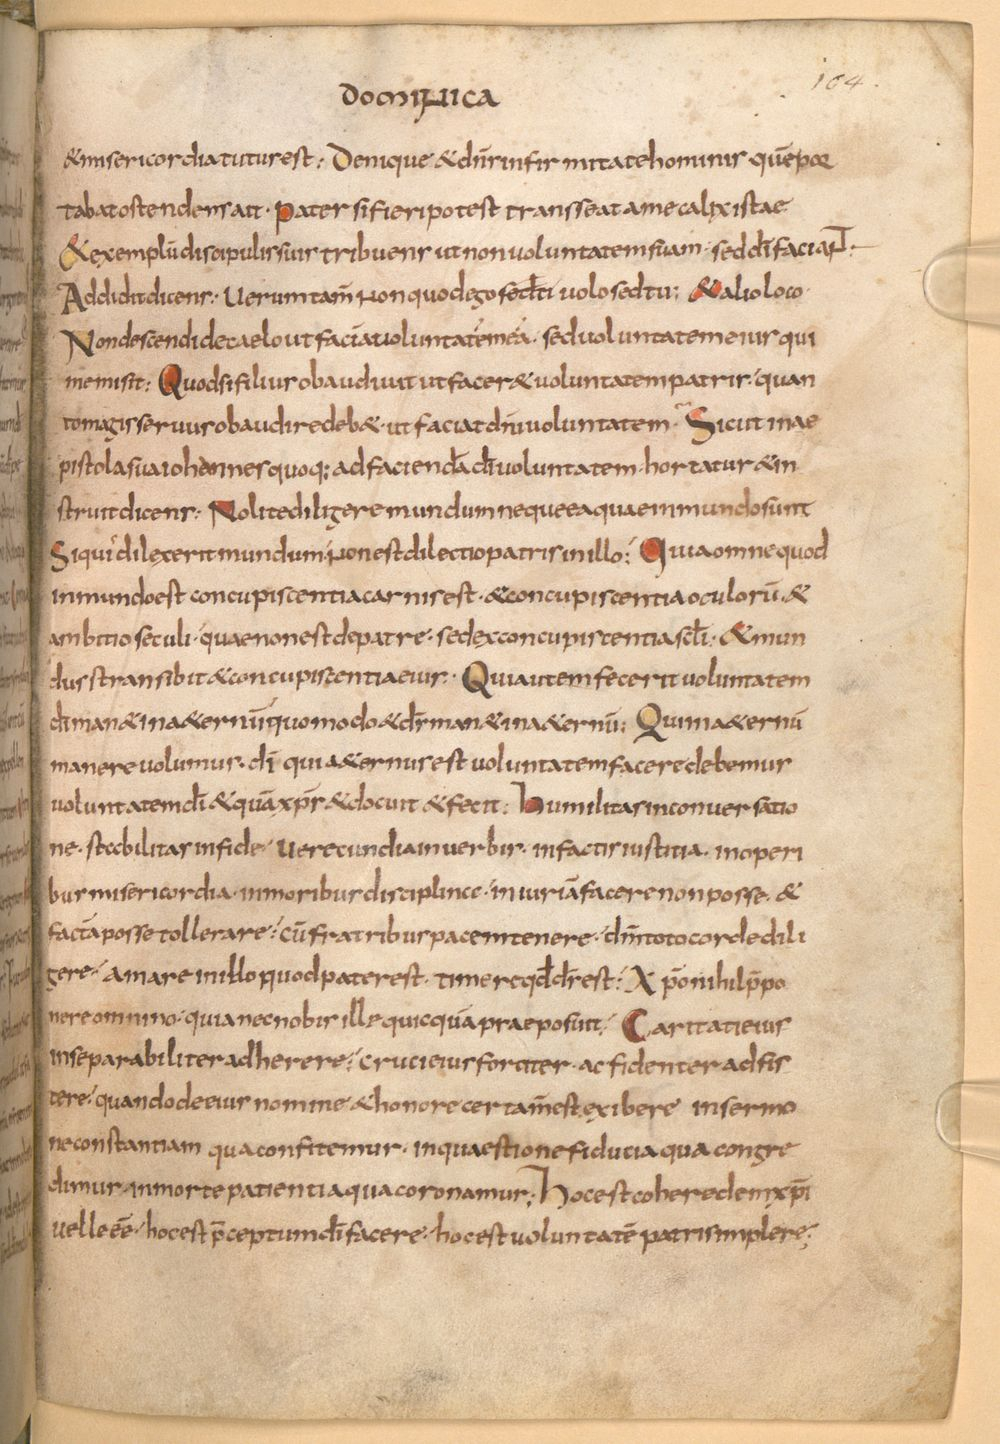 104.
DOMINICA
& misericordia tutus est; Denique & dn̄s infirmitatem hominis quē por
tabat ostendens ait. Pater si fieri potest transseat a me calix iste
& exemplū discipulis suis tribuens ut non voluntatem suam. sed dī faciaNT.
Addidit dicens. Veruntam̄ Non quod ego sed ti volo sed tu; & alio loco.
Non descendi de caelo ut faciā voluntatē meā. sed voluntatem eius qui
me misit; Quod si filius obaudivit ut facer& voluntatem patris. quan
to magis servus obaudire deb& ut faciat dn̄i voluntatem. Sicut in ae
pistola sua iohannes quoq; ad faciendā dī voluntatem hortatur & in
struit dicens; Nolite diligere mundum neque ea quae in mundo sunt
Si qui dilexerit mundum. Non est dilectio patris in illo; Quia omne quod
in mundo est concupiscentia carnis est. & concupiscentia oculorū. &
ambitio seculi. quae non est de patre. sed ex concupiscentia scl̄i. & mun
dus transibit & concupiscentia eius. Qui autem fecerit voluntatem
dī man& in a&ernū quomodo & dī man& in a&ernū; Qui in a&ernū
manere volumus. dī qui a&ernus est voluntatem facere debemus
voluntatem dī & quā xp̄s & docuit & fecit; Humilitas in conversatio
ne. stabilitas in fide. verecundia in verbis. in factis iustitia. in operi
bus misericordia. in moribus disciplina. in iuriā facere non posse. &
factā posse tollerare. cū fratribus pacem tenere. dn̄m toto corde dili
gere. amare in illo quod pater est. timere qd̄ dī est; Xp̄o nihil p̄po
nere omnino. quia nec nobis ille quicquā praeposuit. Caritati eius
inseparabiliter adherere. cruci eius fortiter. ac fidenter adsis
tere. quando de eius nomine & honore certam̄ est exibere in sermo
ne constantiam qua confitemur. in quaestione fiducia qua congre
dimur. in morte patientia qua coronamur; Hoc est coheredem xp̄i
velle eē. hoc est p̄ceptum dī facere. hoc est voluntatē patris implere;